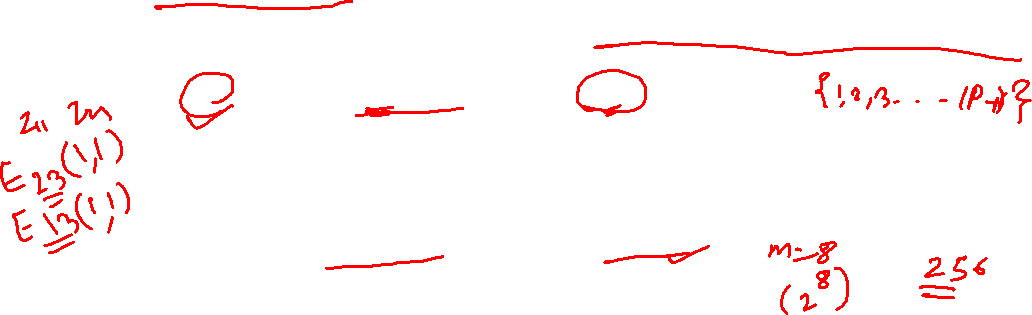 {1,2,3.... (P-1)}
Z11 Zm
E23(1,1)
E13(1,1)
m=8
(2^8) 256